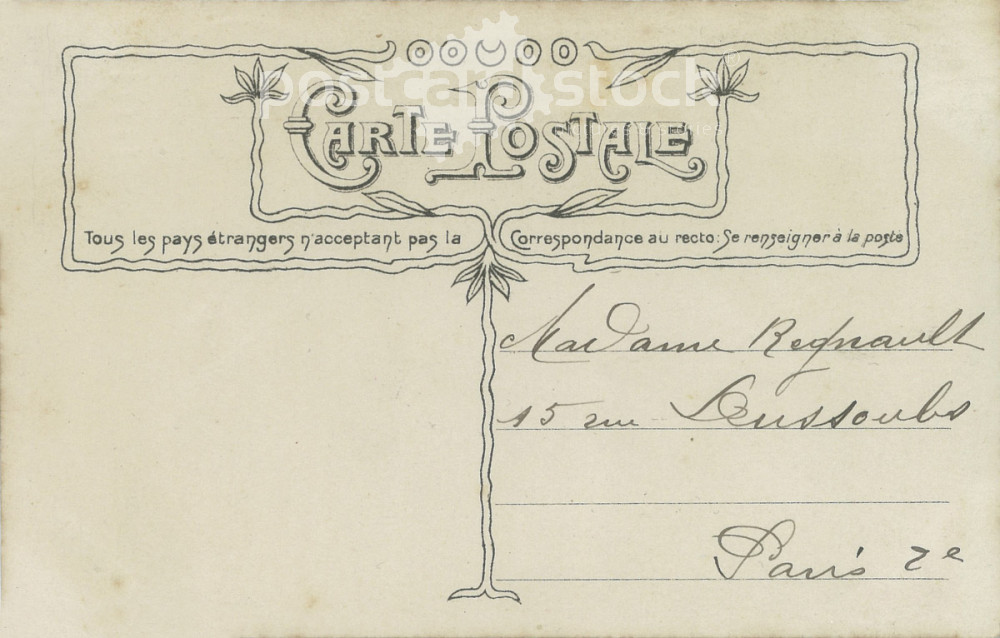 postcardstock
CARTE POSTALE
Tous les pays étrangers n'acceptant pas la Correspondance au recto: Se renseigner à la poste
Madame Regnault
15 rue Dussoubs
Paris 2e